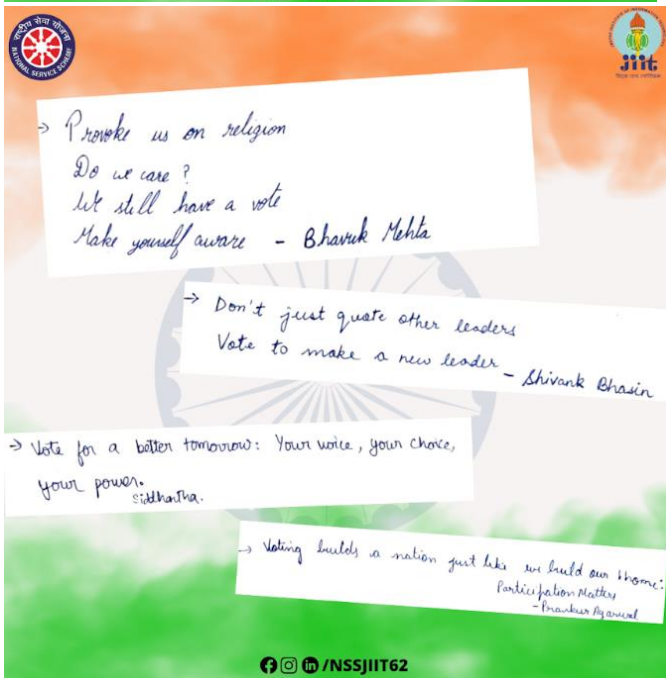 राष्ट्रीय सेवा योजना
NATIONAL SERVICE SCHEME
jiit
→ Provoke us on religion
Do we care?
We still have a vote
Make yourself aware - Bhavuk Mehta
→ Don't just quote other leaders
Vote to make a new leader - Shivank Bhasin
→ Vote for a better tomorrow: Your voice, your choice,
your power.
Siddhartha.
→ Voting builds a nation just like we build our home:
Participation Matters
- Prankur Agarwal
/NSSJIIT62